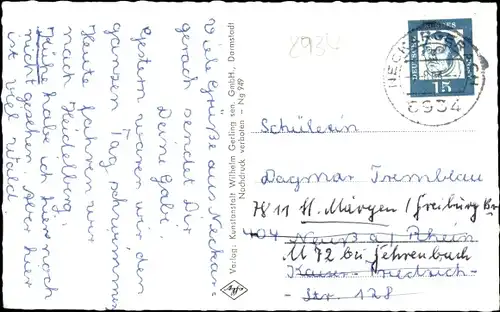 Viele Grüße aus Neckar-
gerach sendet Dir
Deine Gabi.
Gestern waren wir den
ganzen Tag schwimmen
Heute fahren wir
nach Heidelberg.
Kühe habe ich hier noch
nicht gesehen. Aber hier
ist viel Wald
Verlag: Kunstanstalt Wilhelm Gerling sen. GmbH., Darmstadt
Nachdruck verboten - Ng 949
8934
NECKARGERACH
6934
DEUTSCHE BUNDESPOST
15
Schülerin
Dagmar Tremblau
7811 St. Märgen / Freiburg Br
404 Neuß a/ Rhein
M 72 bei Fehrenbach
Kaiser-Friedrich-
Str. 128